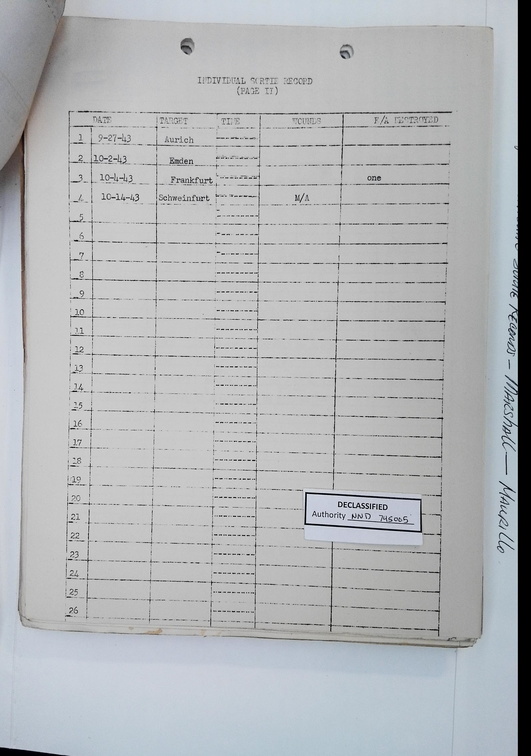 INDIVIDUAL SORTIE RECORD
(PAGE II)
DATE TARGET TIME WOUNDS E/A DESTROYED
1 9-27-43 Aurich
2 10-2-43 Emden
3 10-4-43 Frankfurt one
4 10-14-43 Schweinfurt M/A
5
6
7
8
9
10
11
12
13
14
15
16
17
18
19
20
21
22
23
24
25
26
DECLASSIFIED
Authority NND 745005
Records - Marshall - Maurillo